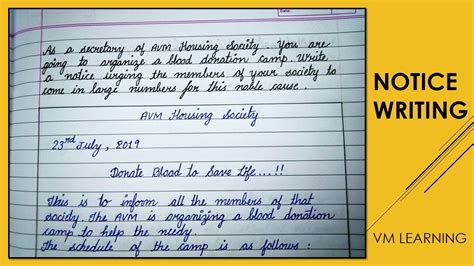 Date:
As a secretary of AVM Housing Society. You are
going to organize a blood donation camp. Write
a notice urging the members of your society to
come in large numbers for this noble cause.
AVM Housing Society
23rd July, 2019
Donate Blood to Save Life...!!
This is to inform all the members of that
society. The AVM is organizing a blood donation
camp to help the needy.
The schedule of the camp is as follows:
NOTICE
WRITING
VM LEARNING